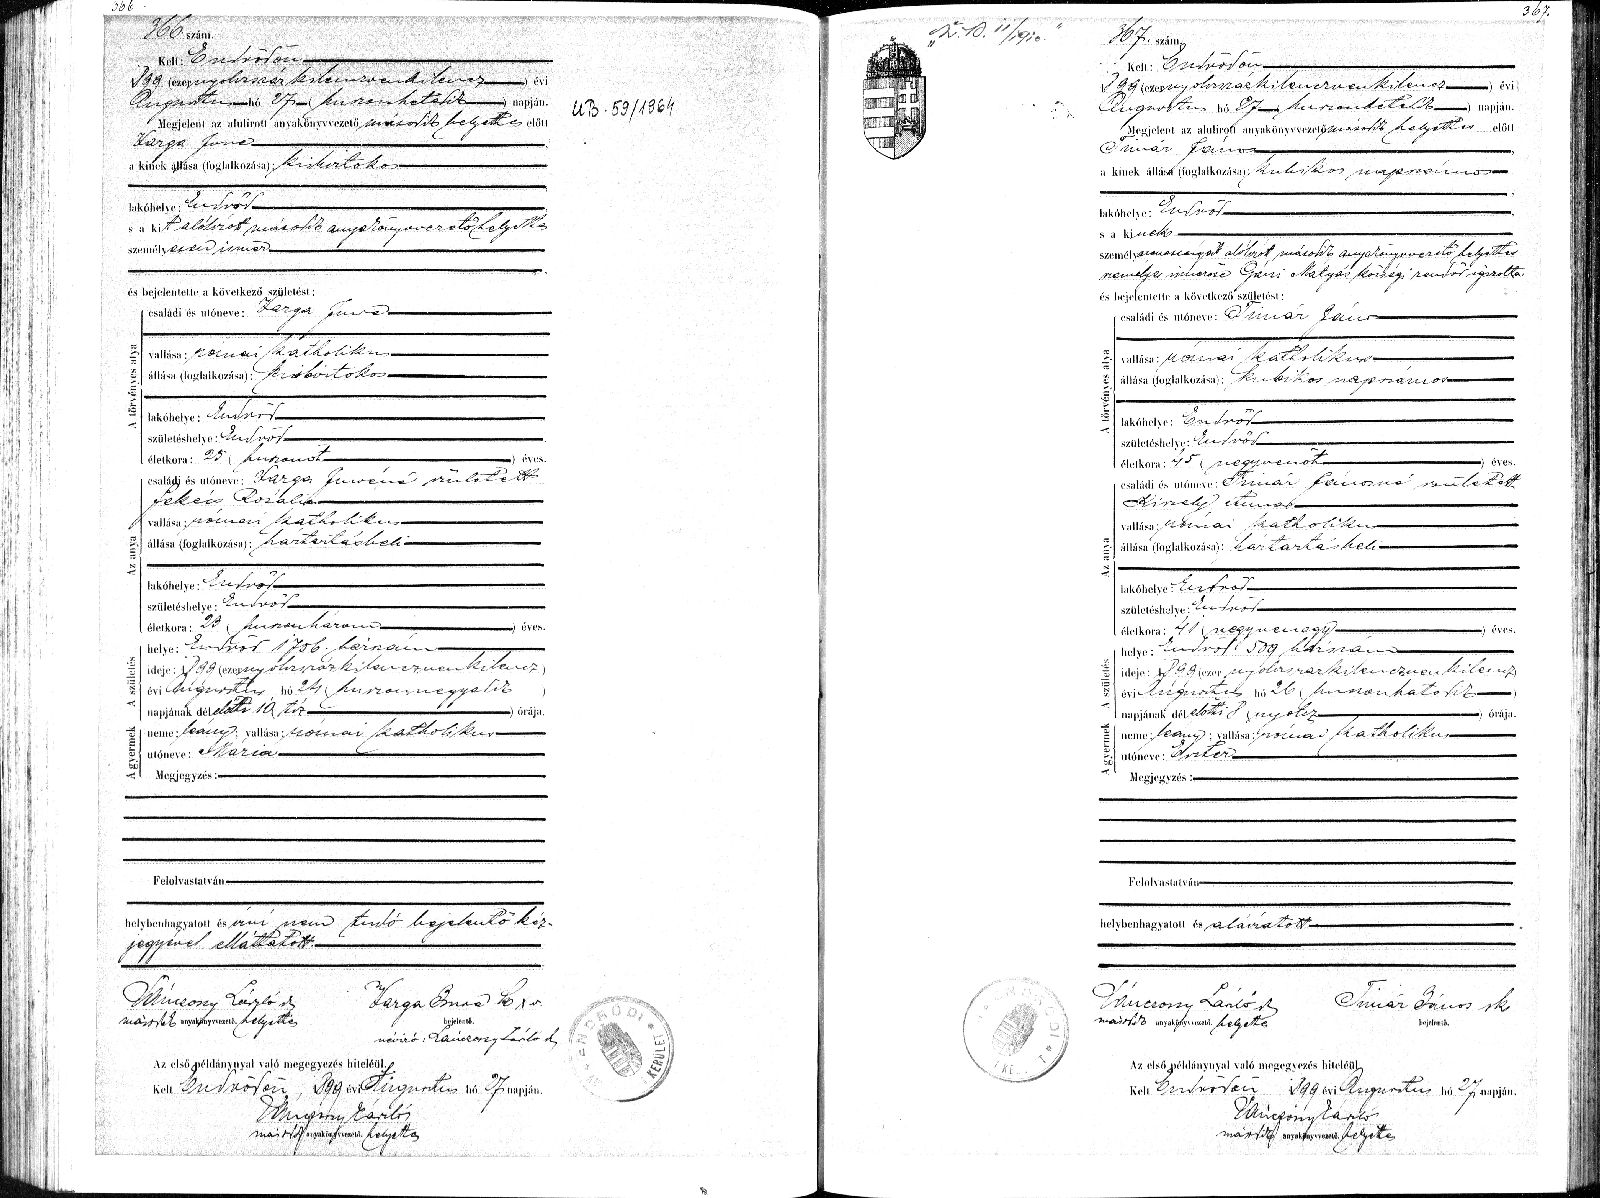 366
366 szám.
Kelt: Endrődön
899 (ezernyolcszázkilencvenkilencz) évi
Augusztus hó 27 (huszonhetedik) napján.
Megjelent az alulirott anyakönyvvezető második helyettes előtt
Varga Imre
a kinek állása (foglalkozása): kisbirtokos
lakóhelye: Endrőd
s a kit alólirott második anyakönyvvezető helyettes
személyesen ismer
és bejelentette a következő születést:
A törvényes atya
családi és utóneve: Varga Imre
vallása: római katholikus
állása (foglalkozása): kisbirtokos
lakóhelye: Endrőd
születéshelye: Endrőd
életkora: 25 (huszonöt) éves.
Az anya
családi és utóneve: Varga Imréné született
Rozália
vallása: római katholikus
állása (foglalkozása): háztartásbeli
lakóhelye: Endrőd
születéshelye: Endrőd
életkora: 23 (huszonhárom) éves.
A születés
helye: Endrőd 1706. házszám
ideje: 899 (ezernyolcszázkilencvenkilencz)
évi Augusztus hó 24 (huszonnegyedik)
napjának délelőtti 10 (tíz) órája.
A gyermek
neme: leány; vallása: római katholikus
utóneve: Mária
Megjegyzés:
Felolvastatván
helybenhagyatott és írni nem tudó bejelentő kéz-
jegyével elláttatott.
Lánczony László
második anyakönyvvezető. helyettes
Varga Imre
bejelentő.
névíró: Lánczony László
ENDRŐDI KERÜLET
Az első példánynyal való megegyezés hiteléül.
Kelt Endrődön, 899 évi Augusztus hó 27 napján.
Lánczony László
második anyakönyvvezető. helyettes
UB. 59/1364
367.
367. szám.
Kelt: Endrődön
899 (ezernyolcszázkilencvenkilencz) évi
Augusztus hó 27 (huszonhetedik) napján.
Megjelent az alulirott anyakönyvvezető második helyettes előtt
Timár János
a kinek állása (foglalkozása): kubikos napszámos
lakóhelye: Endrőd
s a kinek
személyazonosságát alólirott második anyakönyvvezető helyettes
személyes ismerőse Mátyás községi rendőr igazolta
és bejelentette a következő születést:
A törvényes atya
családi és utóneve: Timár János
vallása: római katholikus
állása (foglalkozása): kubikos napszámos
lakóhelye: Endrőd
születéshelye: Endrőd
életkora: 45 (negyvenöt) éves.
Az anya
családi és utóneve: Timár Jánosné született
vallása: római katholikus
állása (foglalkozása): háztartásbeli
lakóhelye: Endrőd
születéshelye: Endrőd
életkora: 41 (negyvenegy) éves.
A születés
helye: Endrőd 509 házszám
ideje: 899 (ezernyolcszázkilencvenkilencz)
évi Augusztus hó 26 (huszonhatodik)
napjának délelőtti 8 (nyolcz) órája.
A gyermek
neme: leány; vallása: római katholikus
utóneve: Eszter
Megjegyzés:
Felolvastatván
helybenhagyatott és aláiratott
Lánczony László
második anyakönyvvezető. helyettes
Timár János sk
bejelentő.
Az első példánynyal való megegyezés hiteléül.
Kelt Endrődön 899 évi Augusztus hó 27 napján.
Lánczony László
második anyakönyvvezető. helyettes